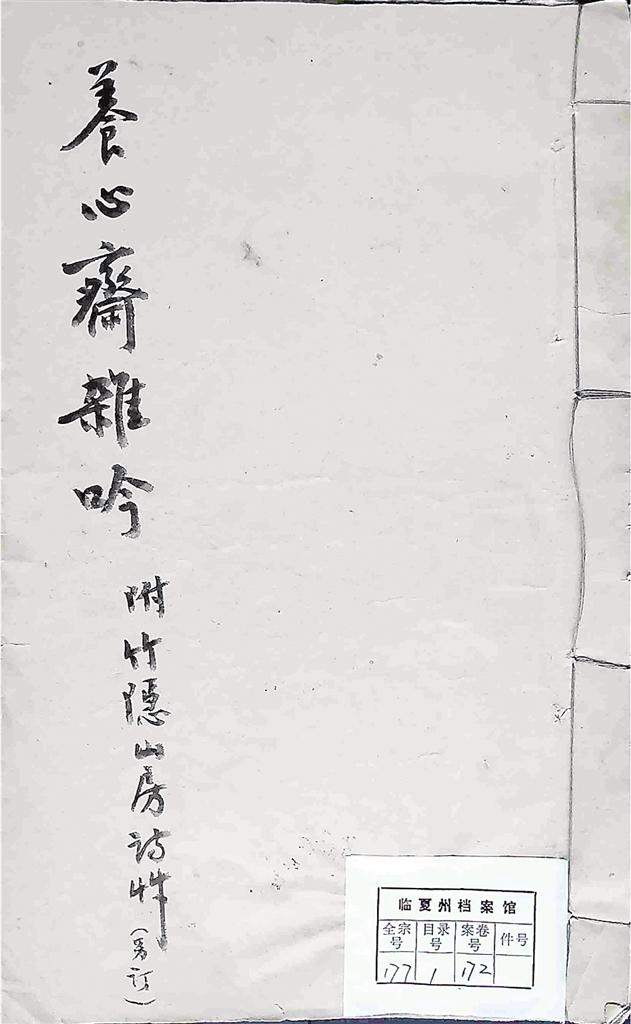 養心齋雜吟
附竹隱山房詩艸
（另訂）
临夏州档案馆
全宗号 目录号 案卷号 件号
177 1 172